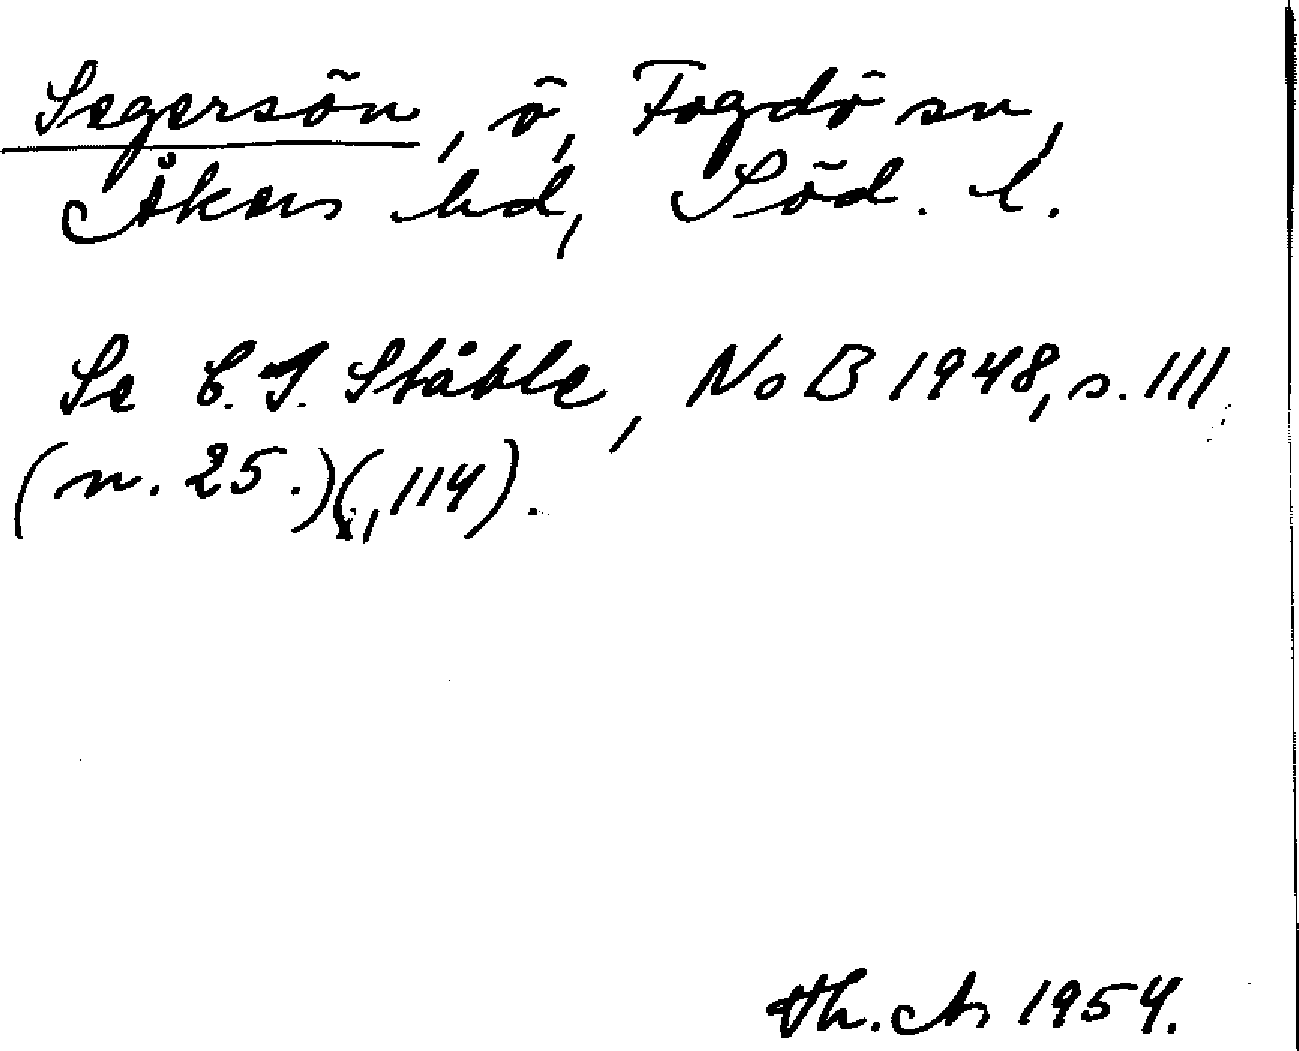 Segersön, ö, Fogdö sn,
Åkers hd, Söd. l.
Se C. I. Ståhle, NoB 1948, s. 111
(n. 25.)(, 114).
Th. A. 1954.